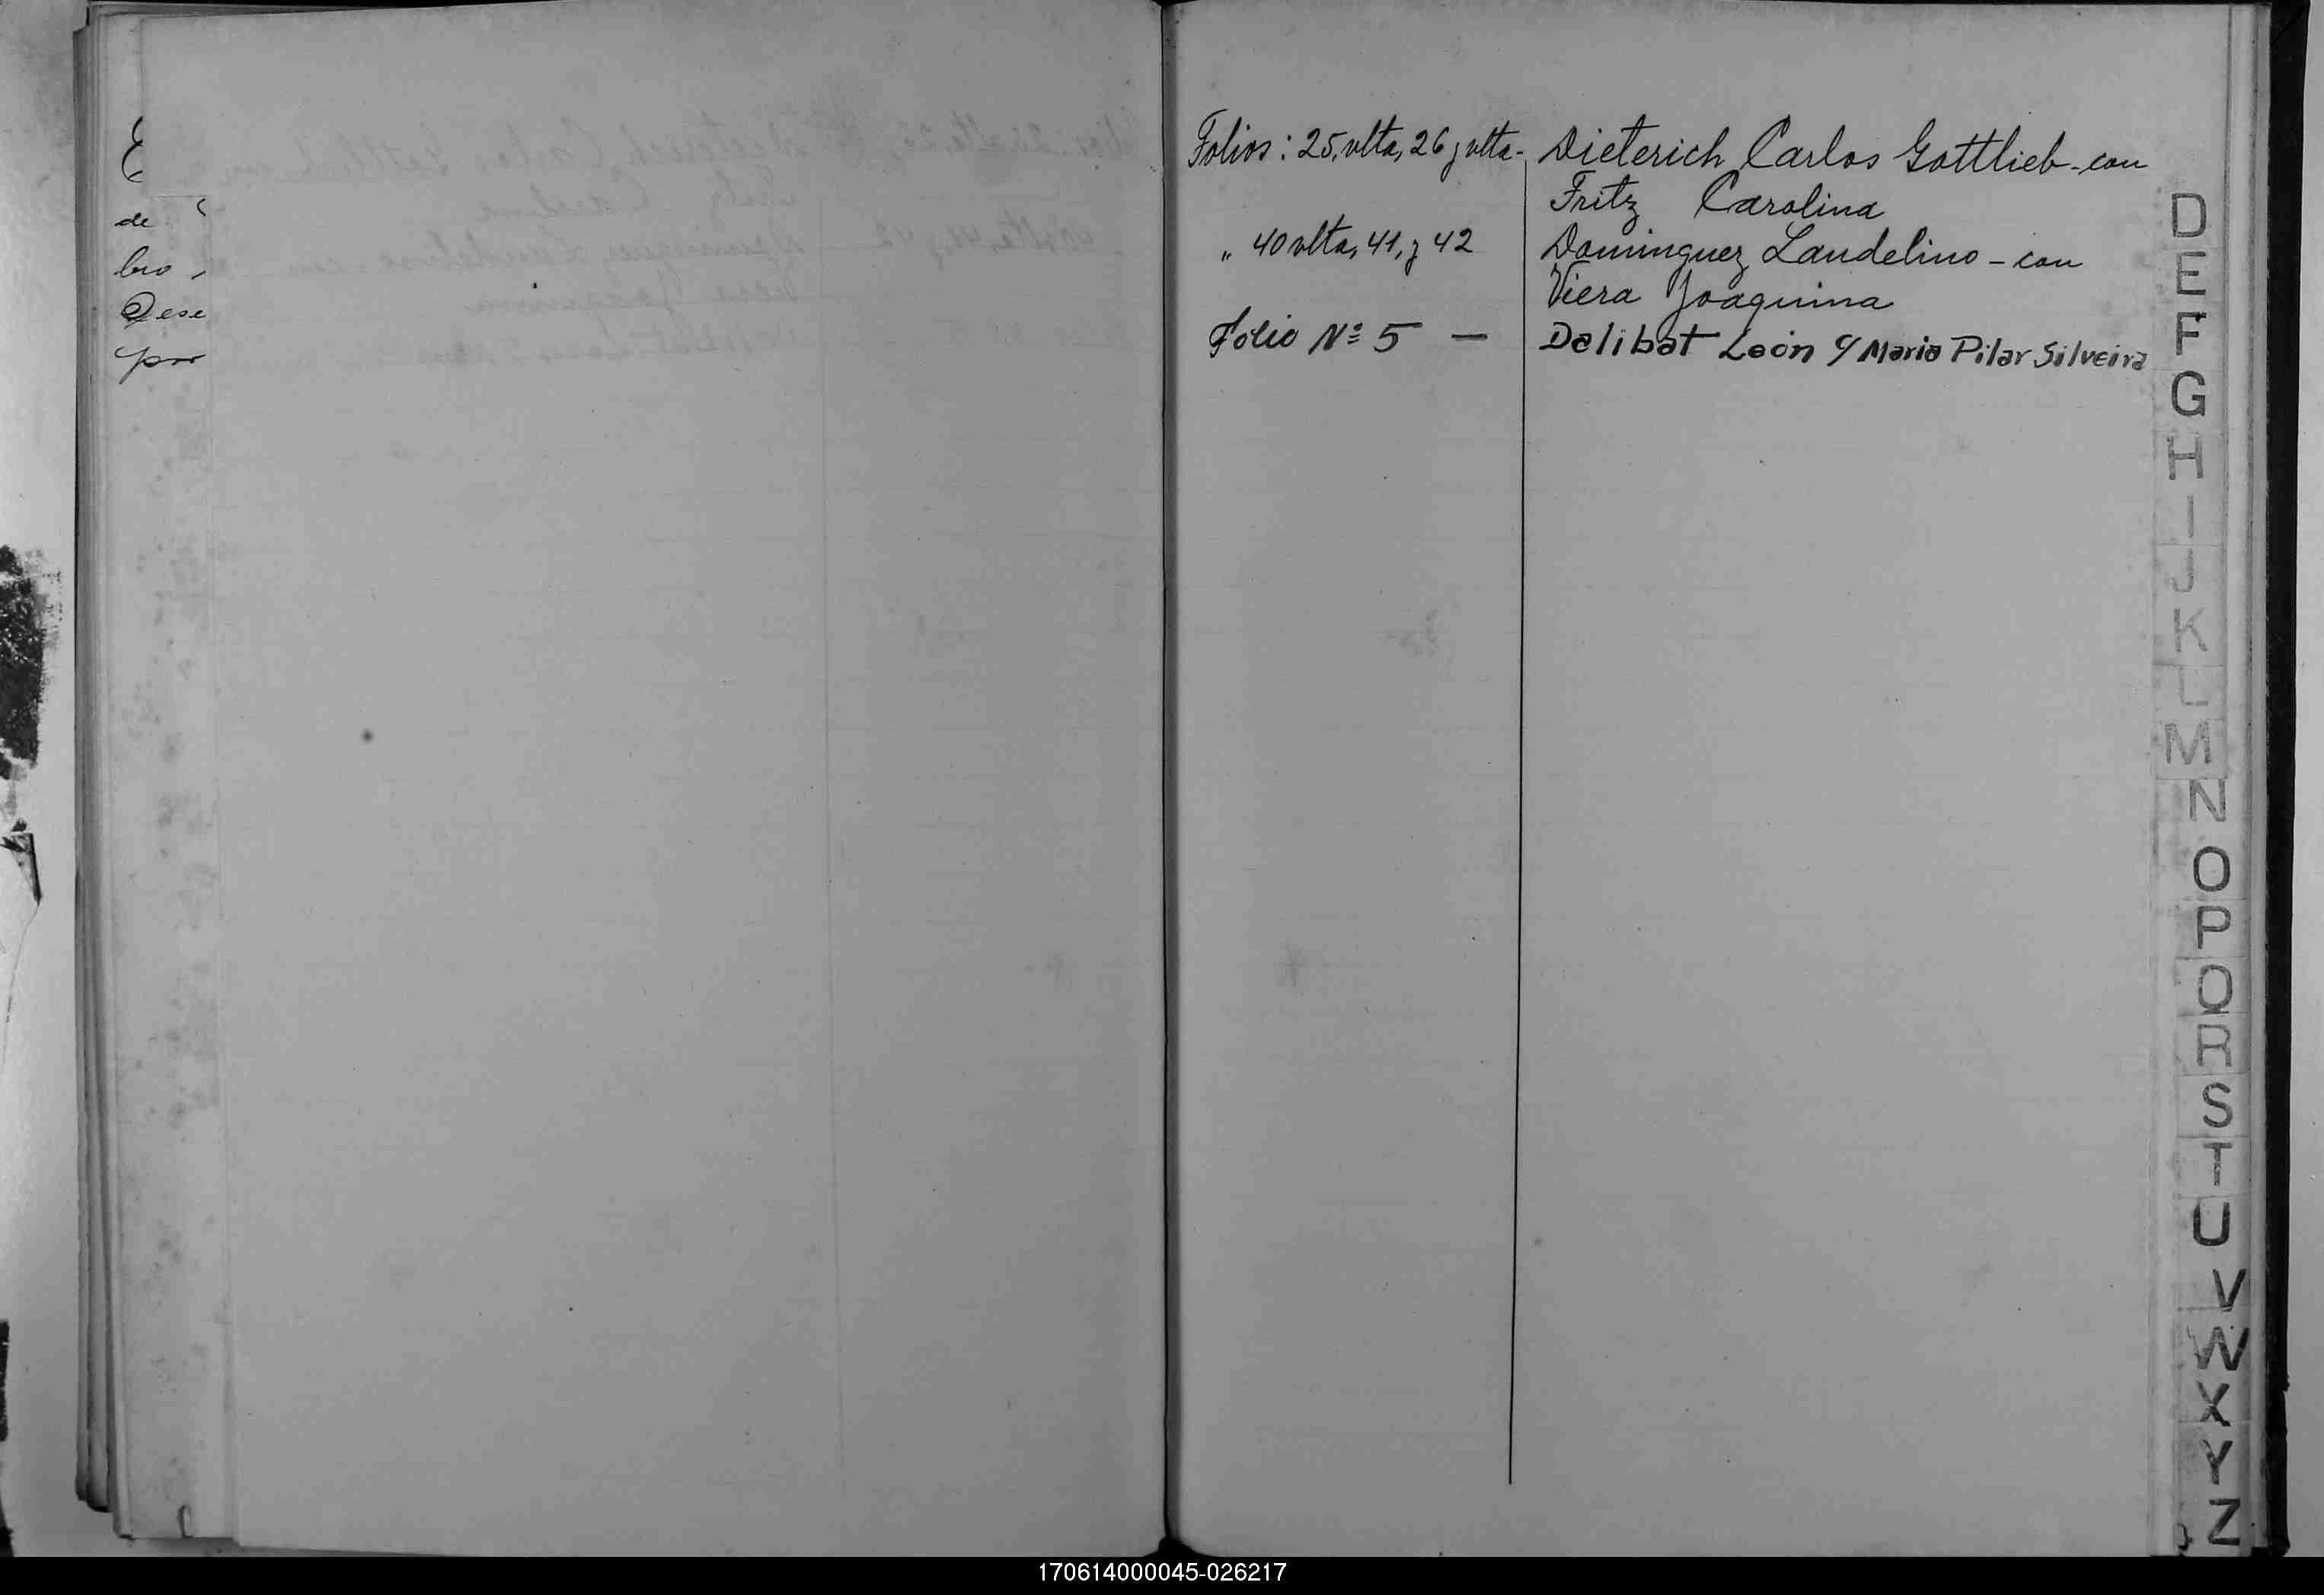 de
bro
Dese
por
Folios: 25, vlta, 26 y vlta- Dieterich Carlos Gottlieb - con
Fritz Carolina
" 40 vlta, 41, y 42 Dominguez Laudelino - con
Viera Joaquina
Folio Nº 5 — Dalibat León c/ Maria Pilar Silveira
D
E
F
G
H
I
J
K
L
M
N
O
P
Q
R
S
T
U
V
W
X
Y
Z
170614000045-026217